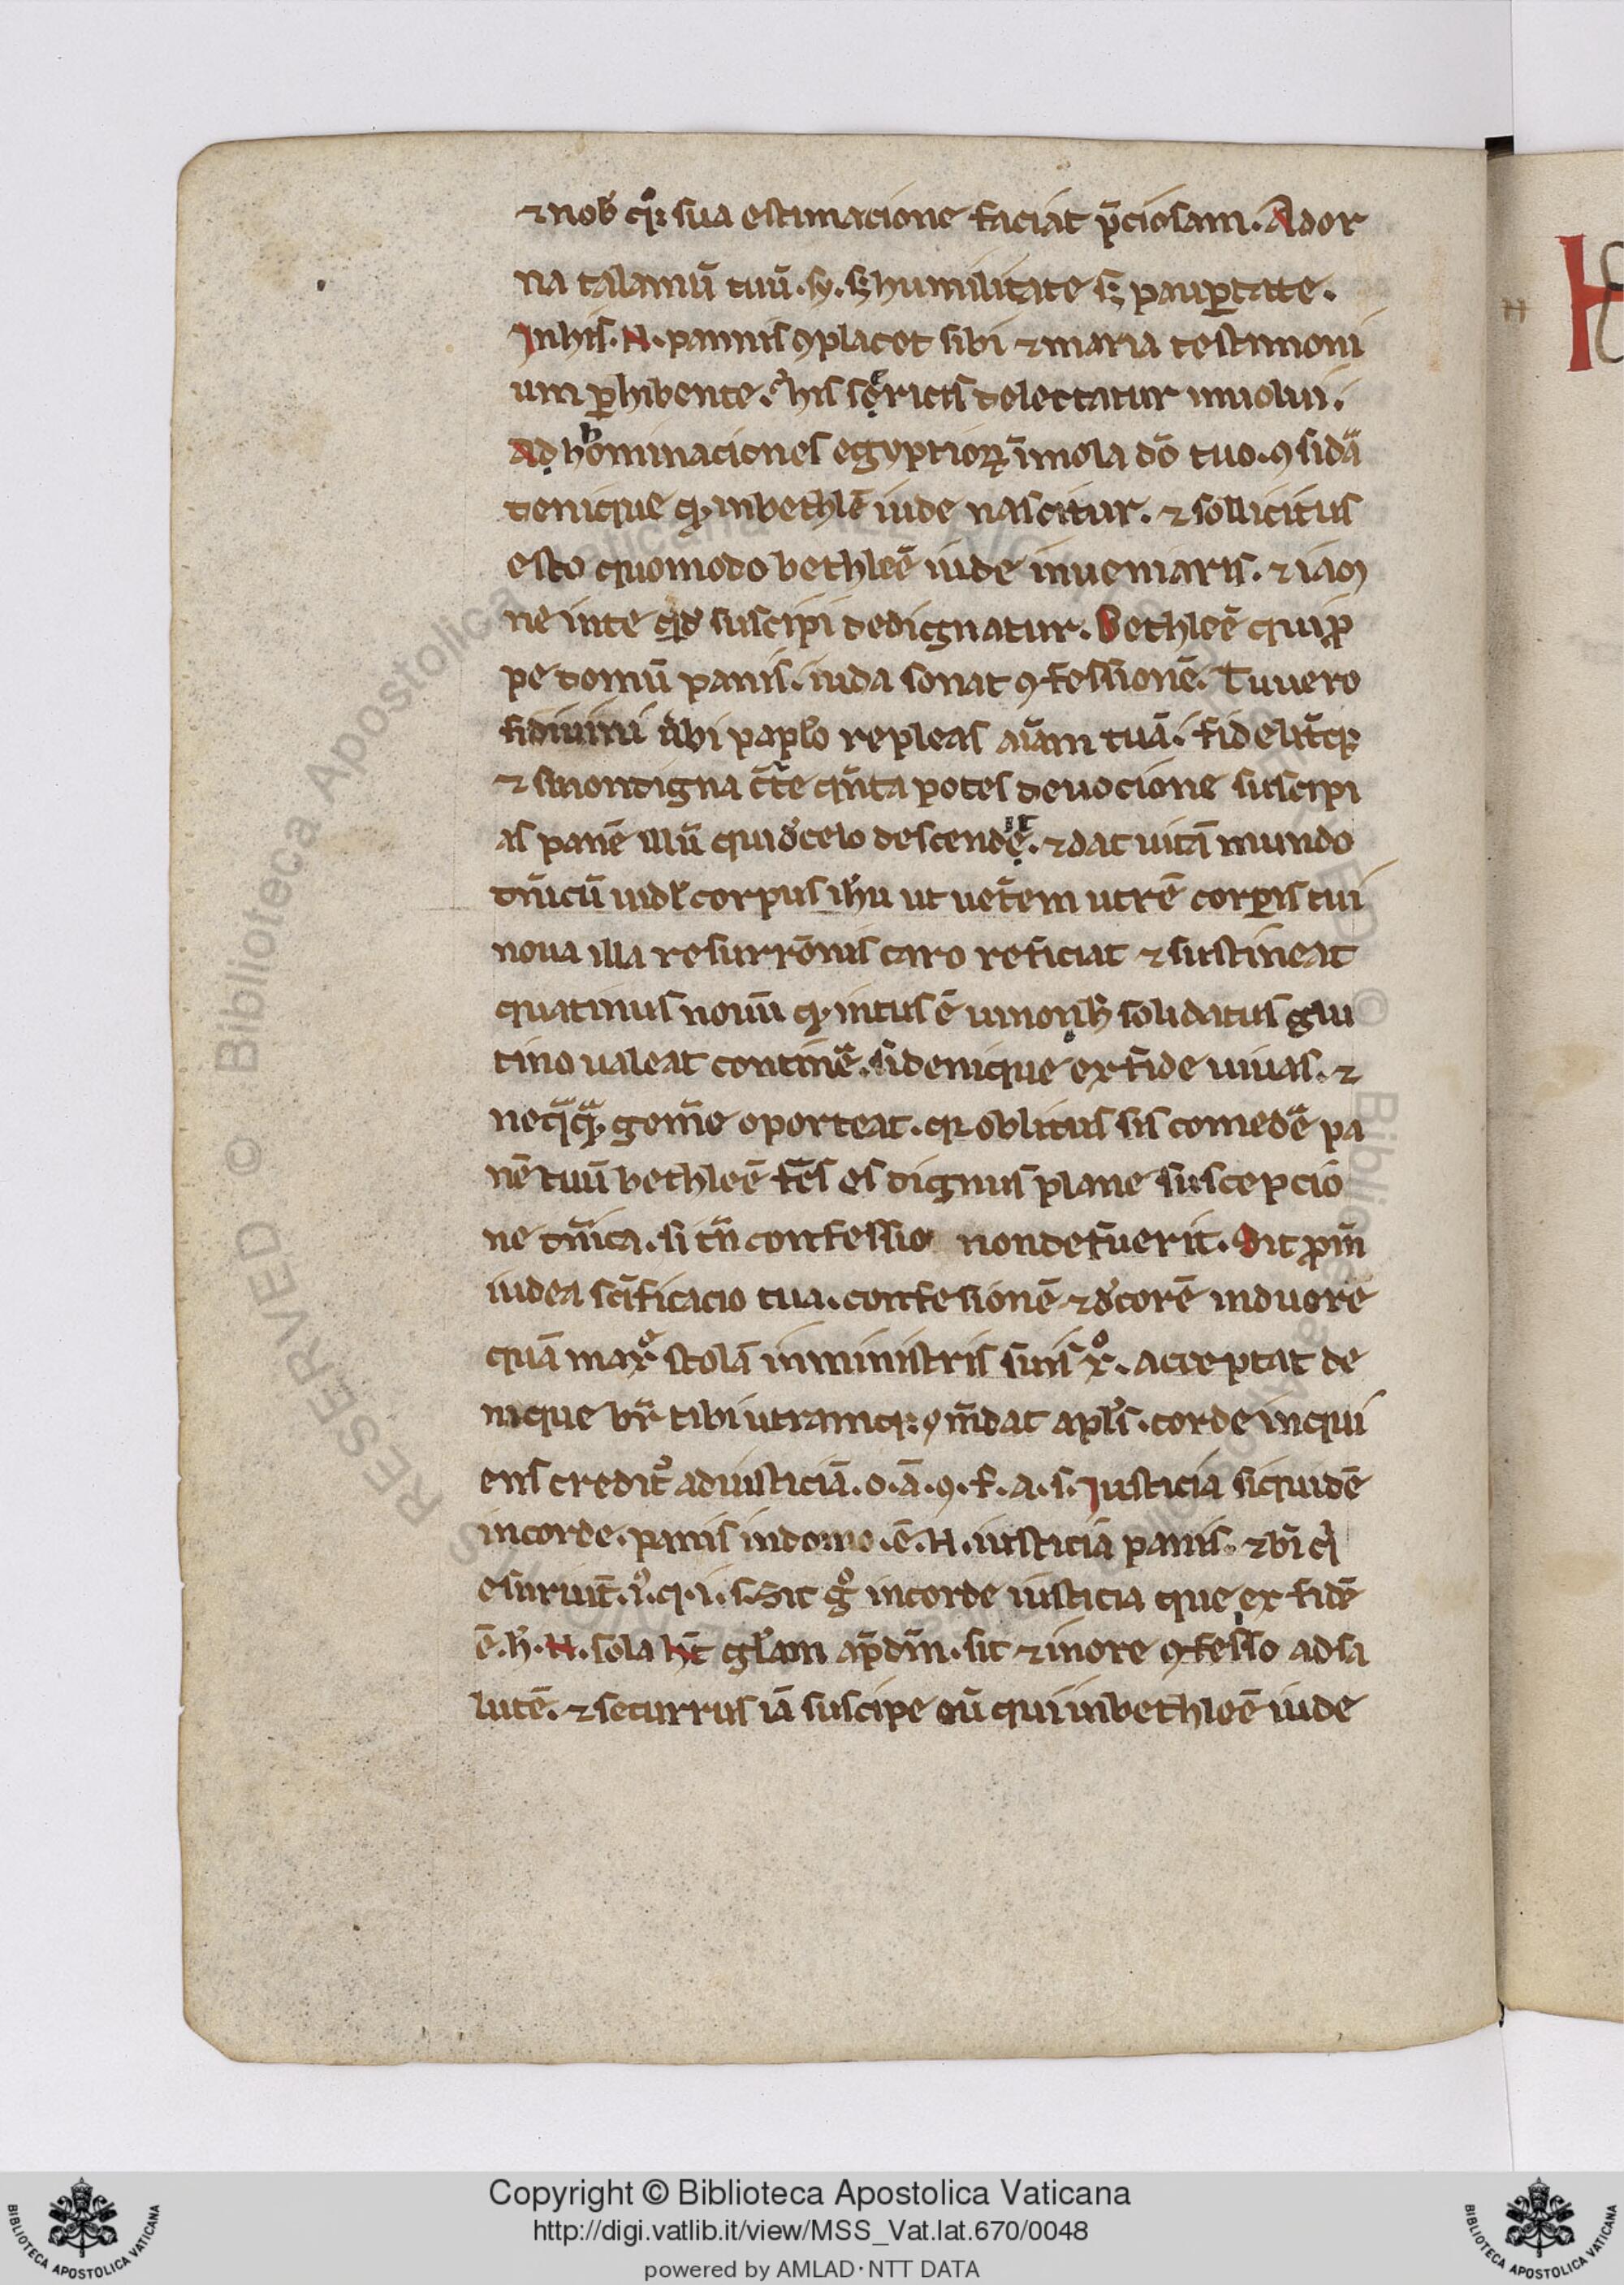 ⁊ nob̄ qͦꝫ sua estimacione faciat p̄ciosam. Ador
na talamū tuū. sy. s; humilitate s; paup̱tate.
In his. N. pannis ꝯplacet sibi ⁊ maria testimoni
um ꝑhibente. ⁊ his sericis delectatur inuolui.
Ad hominaciones egyptioꝝ īmola dō tuo. ꝯsidā
denique qꝫ in bethlē iude nascitur. ⁊ sollicitus
esto quomodo bethleē iude inueniaris. ⁊ iam
ne in te qͥdē suscipi dedignatur. Bethleē quip
pe domū panis. iuda sonat ꝯfessionē. Tu uero
si diuini ūbi pap̱lo repleas aīam tuā. fidelit̄qꝫ
⁊ si non digna c̄te qͣnta potes deuocione suscipi
as panē illū qui d̓ celo descendit. ⁊ dat uitā mundo
dn̄icū uidꝉ corpus ih̄u ut uet̄em utrē corꝑis tui
noua illa resurrōnis caro reficiat ⁊ sustineat
quatinus nouū qꝫ intus ē solidatus glu
tino ualeat continē. si denique ex fide uiuas. ⁊
neqͣqͣꝫ gem̄e oporteat. qꝫ oblitus sis comedē pa
nē tuū bethleē f̄cs es dignus plane suscepcio
ne dn̄ica. si tn̄ confessio non defuerit. Sit ꝓīn
iudea scīficacio tua. confesionē ⁊ d̓corē induere
quā maxͣ stolā in ministris suis xͦ. acceptat de
nique br̄ tibi utramqꝫ ꝯm̄dat apls̄. corde inqui
ens credit᷑ ad iusticiā. o. ā. ꝯ. f. a. s. Justicia siquidē
in corde. panis in domo. ē. N. iusticia panis. ⁊ bī qͥ
esuriūt. i. q. i. s. Sit gͦ in corde iusticia que ex fide
ē. h̄. N. sola ht̄ gl̄am ap̄d dm̄. sit ⁊ in ore ꝯfessio ad sa
lutē. ⁊ securrus iā suscipe eū qui in bethleē iude
H
RESERVED © Biblioteca Apostolica Vaticana
Copyright © Biblioteca Apostolica Vaticana
http://digi.vatlib.it/view/MSS_Vat.lat.670/0048
powered by AMLAD·NTT DATA
BIBLIOTECA APOSTOLICA VATICANA
BIBLIOTECA APOSTOLICA VATICANA